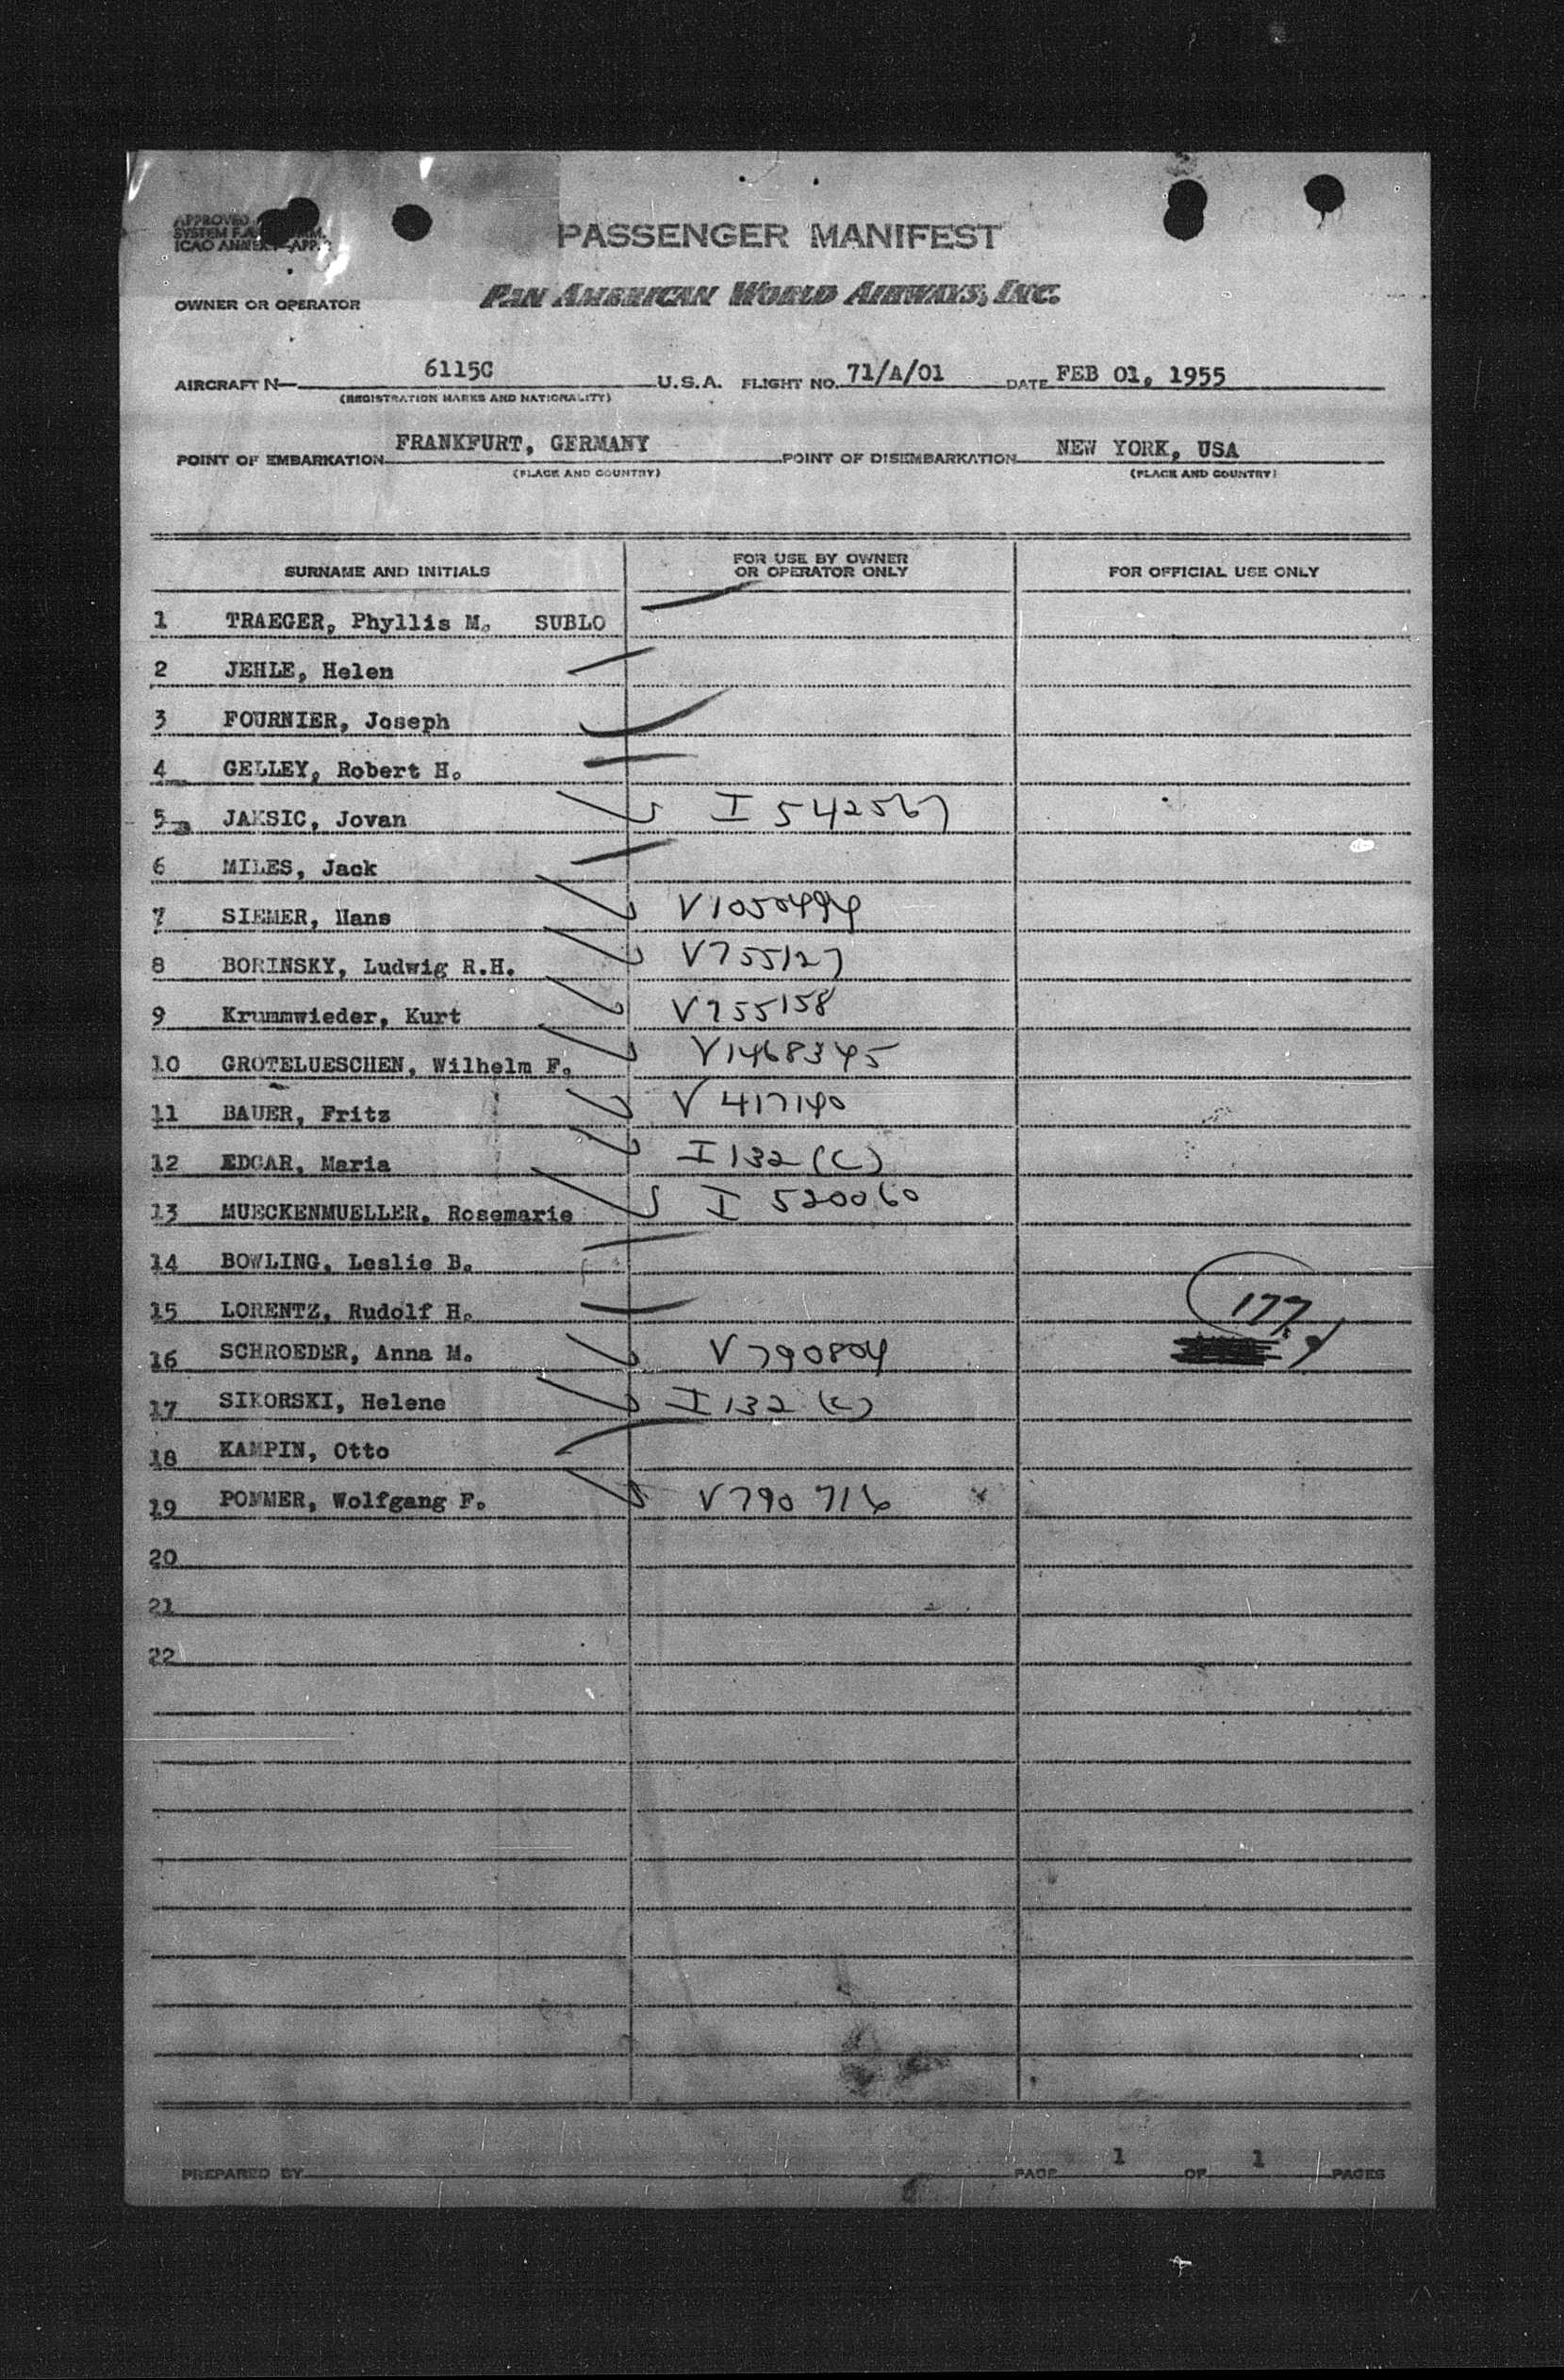 APPROVED
SYSTEM
ICAO ANNEX APP.
PASSENGER MANIFEST
OWNER OR OPERATOR
PAN AMERICAN WORLD AIRWAYS, INC.
AIRCRAFT N— 6115C U.S.A. FLIGHT NO. 71/A/01 DATE FEB 01, 1955
(REGISTRATION MARKS AND NATIONALITY)
POINT OF EMBARKATION FRANKFURT, GERMANY POINT OF DISEMBARKATION NEW YORK, USA
(PLACE AND COUNTRY) (PLACE AND COUNTRY)
SURNAME AND INITIALS FOR USE BY OWNER OR OPERATOR ONLY FOR OFFICIAL USE ONLY
1 TRAEGER, Phyllis M. SUBLO
2 JEHLE, Helen
3 FOURNIER, Joseph
4 GELLEY, Robert H.
5 JAKSIC, Jovan I 542567
6 MILES, Jack
7 SIEMER, Hans V1050494
8 BORINSKY, Ludwig R.H. V755127
9 Krummwieder, Kurt V755158
10 GROTELUESCHEN, Wilhelm F. V1468345
11 BAUER, Fritz V 417140
12 EDGAR, Maria I 132 (C)
13 MUECKENMUELLER, Rosemarie I 520060
14 BOWLING, Leslie B.
15 LORENTZ, Rudolf H. 177
16 SCHROEDER, Anna M. V 790804
17 SIKORSKI, Helene I 132 (C)
18 KAMPIN, Otto
19 POMMER, Wolfgang F. V790 716
20
21
22
PREPARED BY PAGE 1 OF 1 PAGES